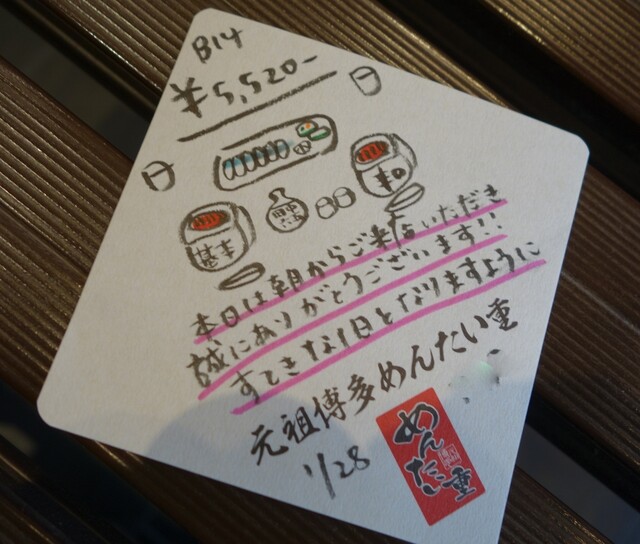 B14
¥5,520-
基本
本日は朝からご来店いただき
誠にありがとうございます!!
すてきな1日となりますように
元祖博多めんたい重
1/28
めんたい重